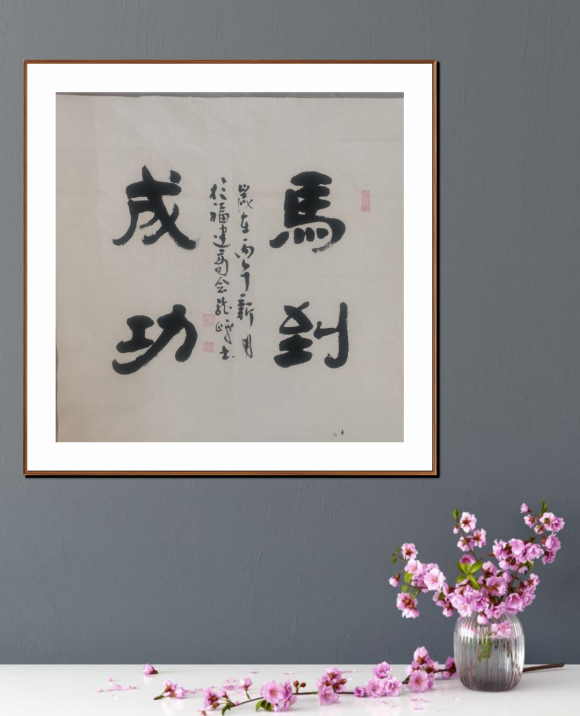 馬到
歲在丙午新月
於福建商会龍峰书
成功